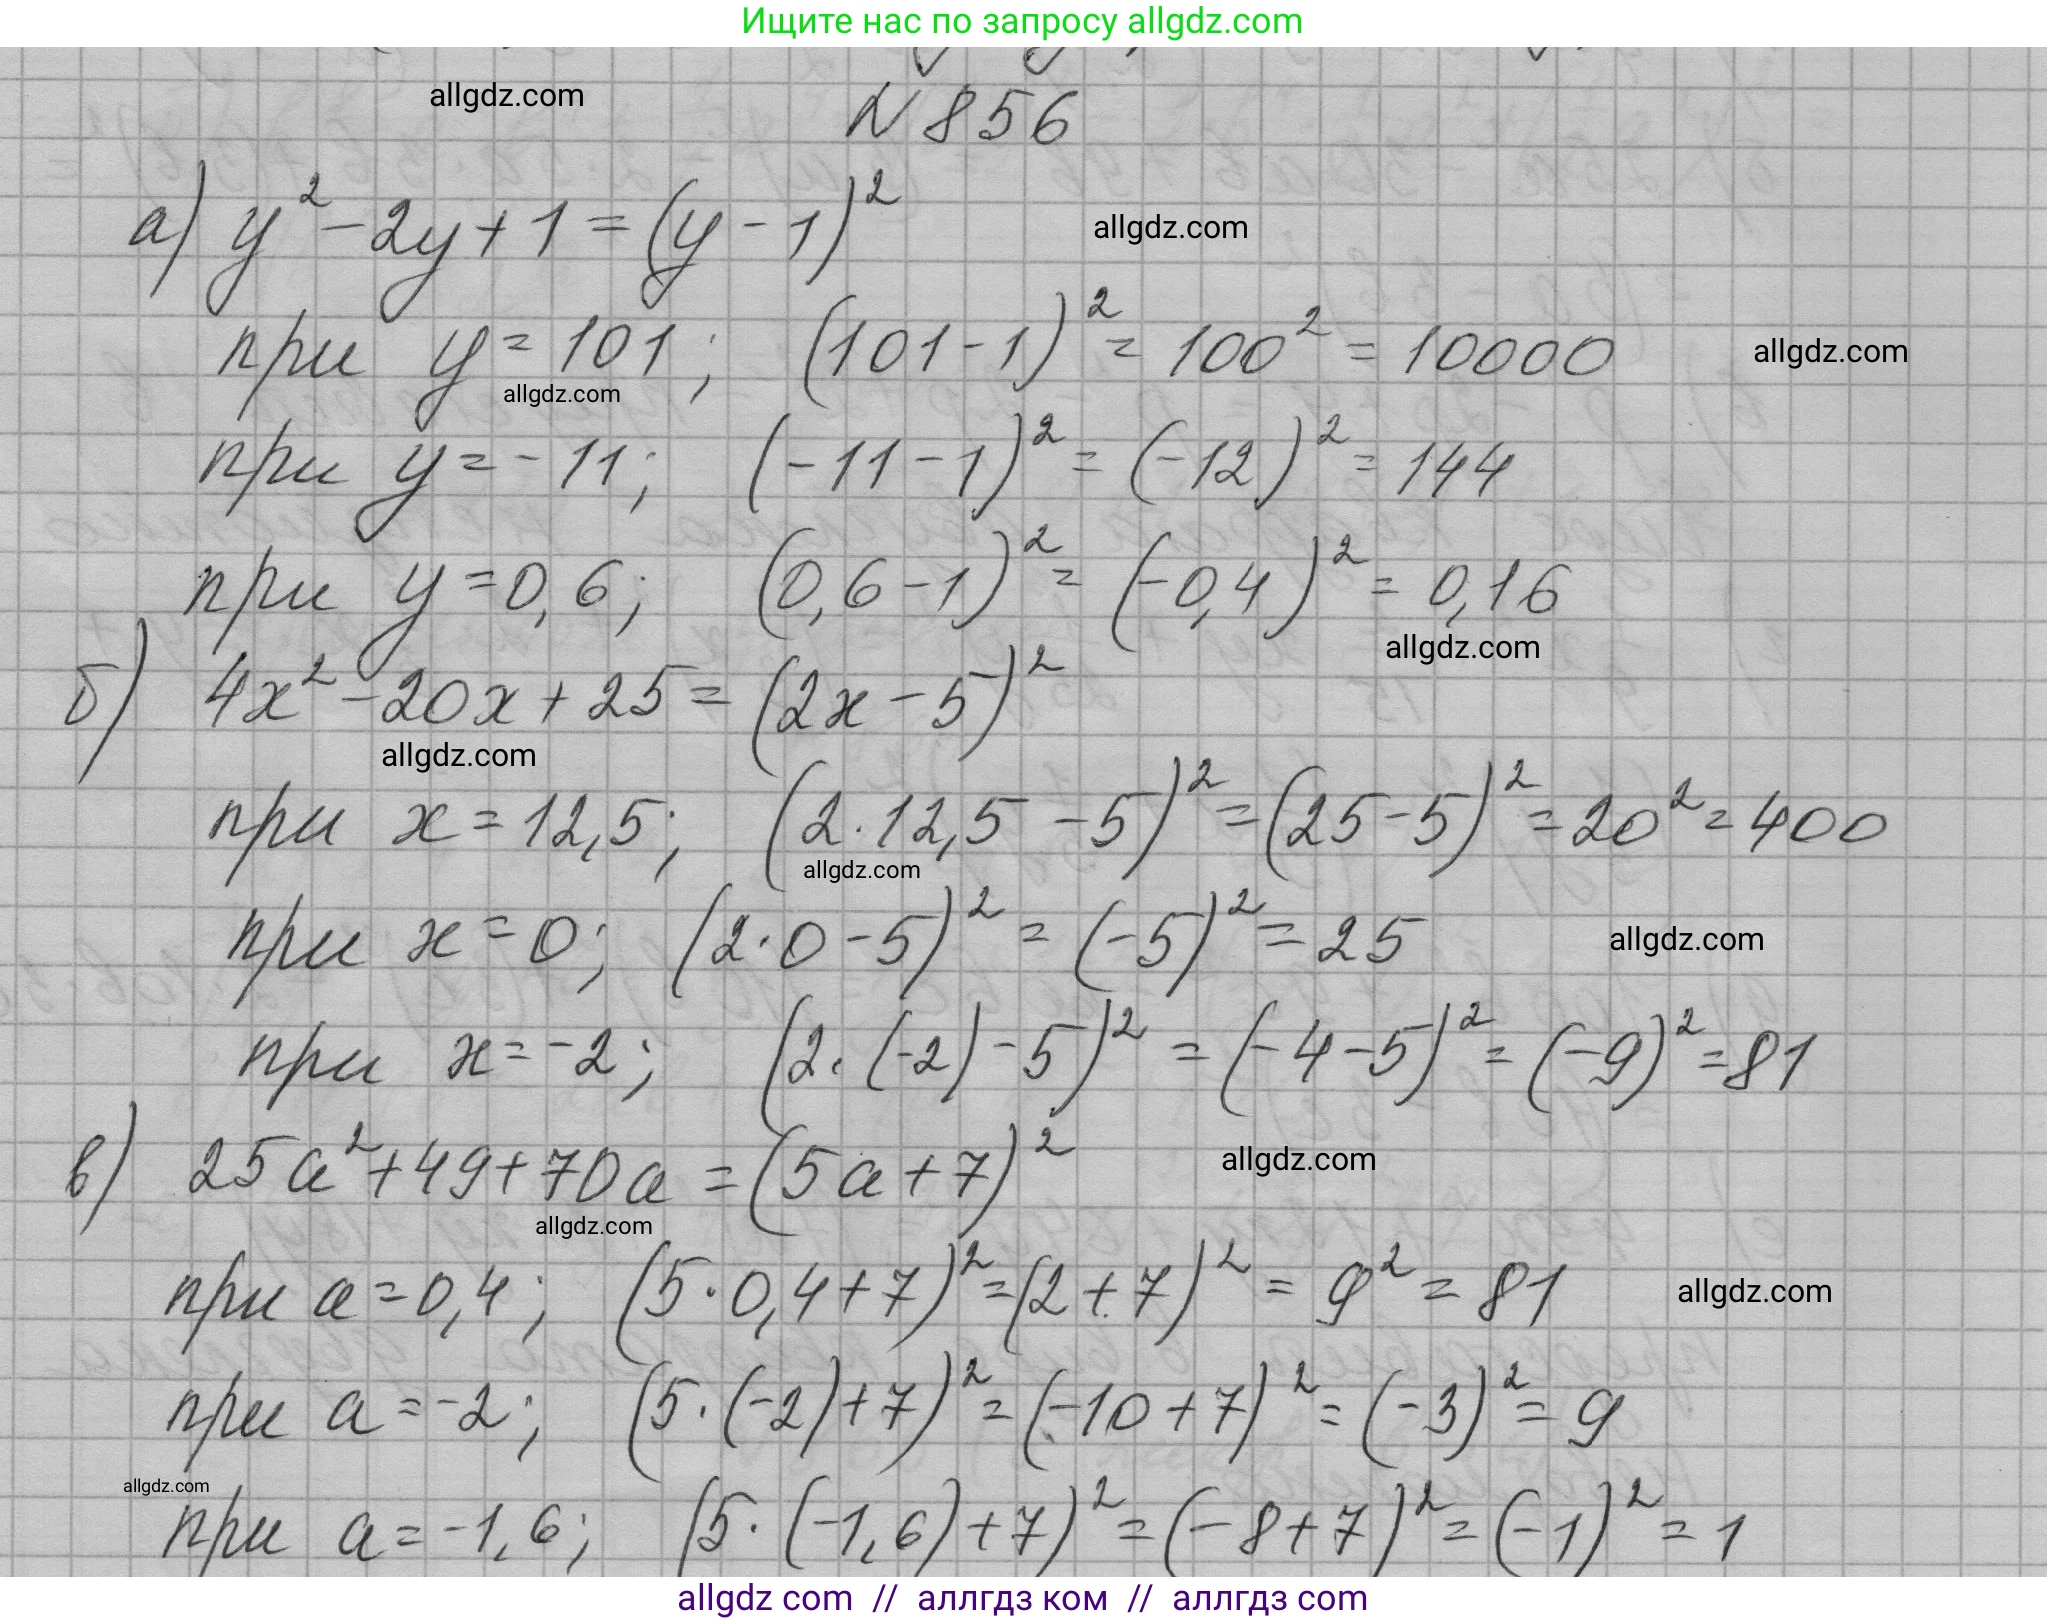 Ищите нас по запросу allgdz.com
allgdz.com
N 856
а) y² - 2y + 1 = (y - 1)²
allgdz.com
при y = 101; (101 - 1)² = 100² = 10000
allgdz.com
allgdz.com
при y = -11; (-11 - 1)² = (-12)² = 144
при y = 0,6; (0,6 - 1)² = (-0,4)² = 0,16
allgdz.com
б) 4x² - 20x + 25 = (2x - 5)²
allgdz.com
при x = 12,5; (2·12,5 - 5)² = (25 - 5)² = 20² = 400
allgdz.com
при x = 0; (2·0 - 5)² = (-5)² = 25
allgdz.com
при x = -2; (2·(-2) - 5)² = (-4 - 5)² = (-9)² = 81
в) 25a² + 49 + 70a = (5a + 7)²
allgdz.com
allgdz.com
при a = 0,4; (5·0,4 + 7)² = (2 + 7)² = 9² = 81
allgdz.com
при a = -2; (5·(-2) + 7)² = (-10 + 7)² = (-3)² = 9
allgdz.com
при a = -1,6; (5·(-1,6) + 7)² = (-8 + 7)² = (-1)² = 1
allgdz com // аллгдз ком // аллгдз com